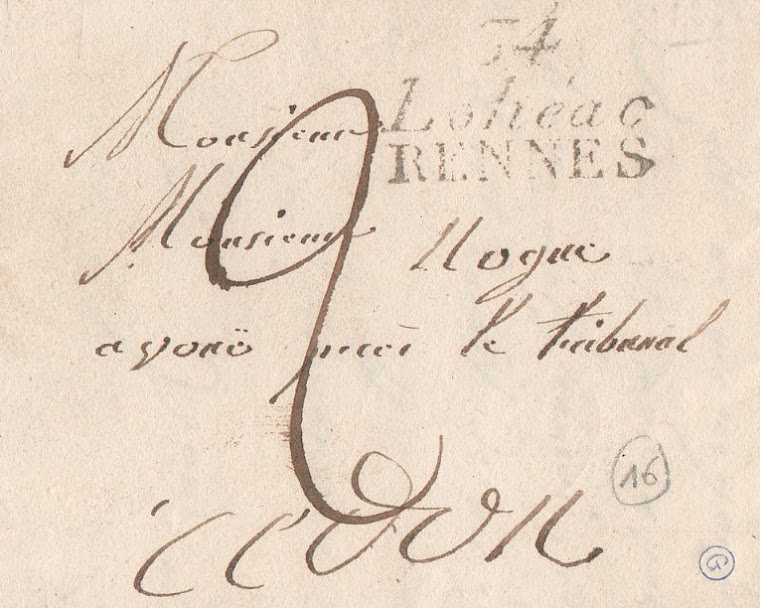 34
Lohéac
RENNES
Monsieur
Monsieur Nogue
avoué près le tribunal
2
Redon
16
G